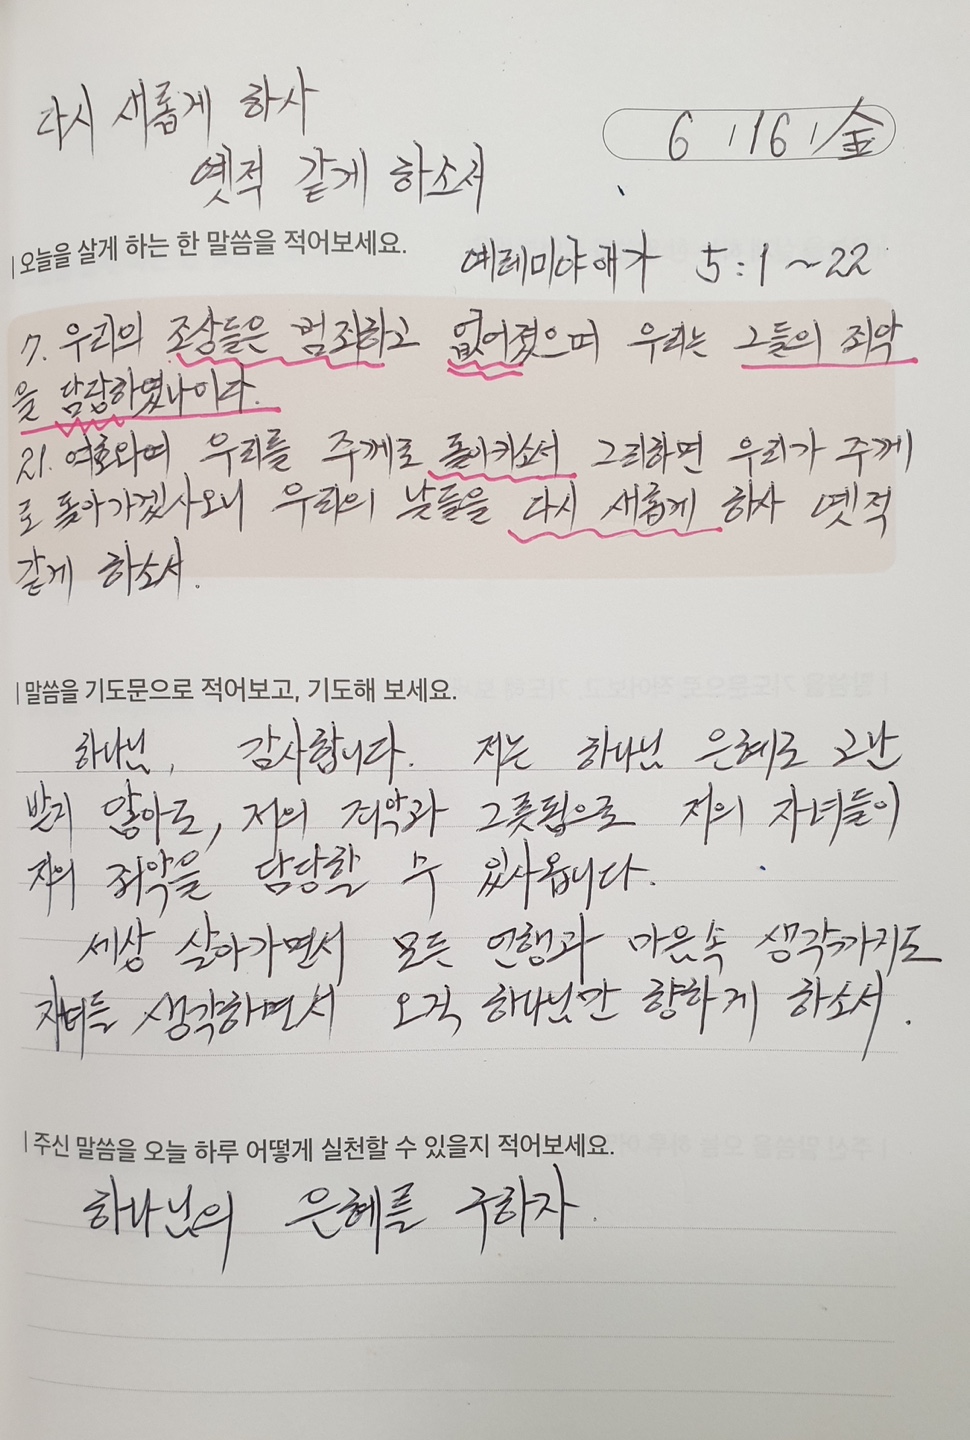 다시 새롭게 하사
옛적 같게 하소서
6 / 16 / 金
오늘을 살게 하는 한 말씀을 적어보세요.
예레미야애가 5:1~22
7. 우리의 조상들은 범죄하고 없어졌으며 우리는 그들의 죄악
을 담당하였나이다.
21. 여호와여 우리를 주께로 돌이키소서 그리하면 우리가 주께
로 돌아가겠사오니 우리의 날들을 다시 새롭게 하사 옛적
같게 하소서.
말씀을 기도문으로 적어보고, 기도해 보세요.
하나님, 감사합니다. 저는 하나님 은혜로 고난
받지 않아도, 저의 죄악과 그릇됨으로 저의 자녀들이
저의 죄악을 담당할 수 있사옵니다.
세상 살아가면서 모든 언행과 마음속 생각까지도
자녀들 생각하면서 오직 하나님만 향하게 하소서.
주신 말씀을 오늘 하루 어떻게 실천할 수 있을지 적어보세요.
하나님의 은혜를 구하자.